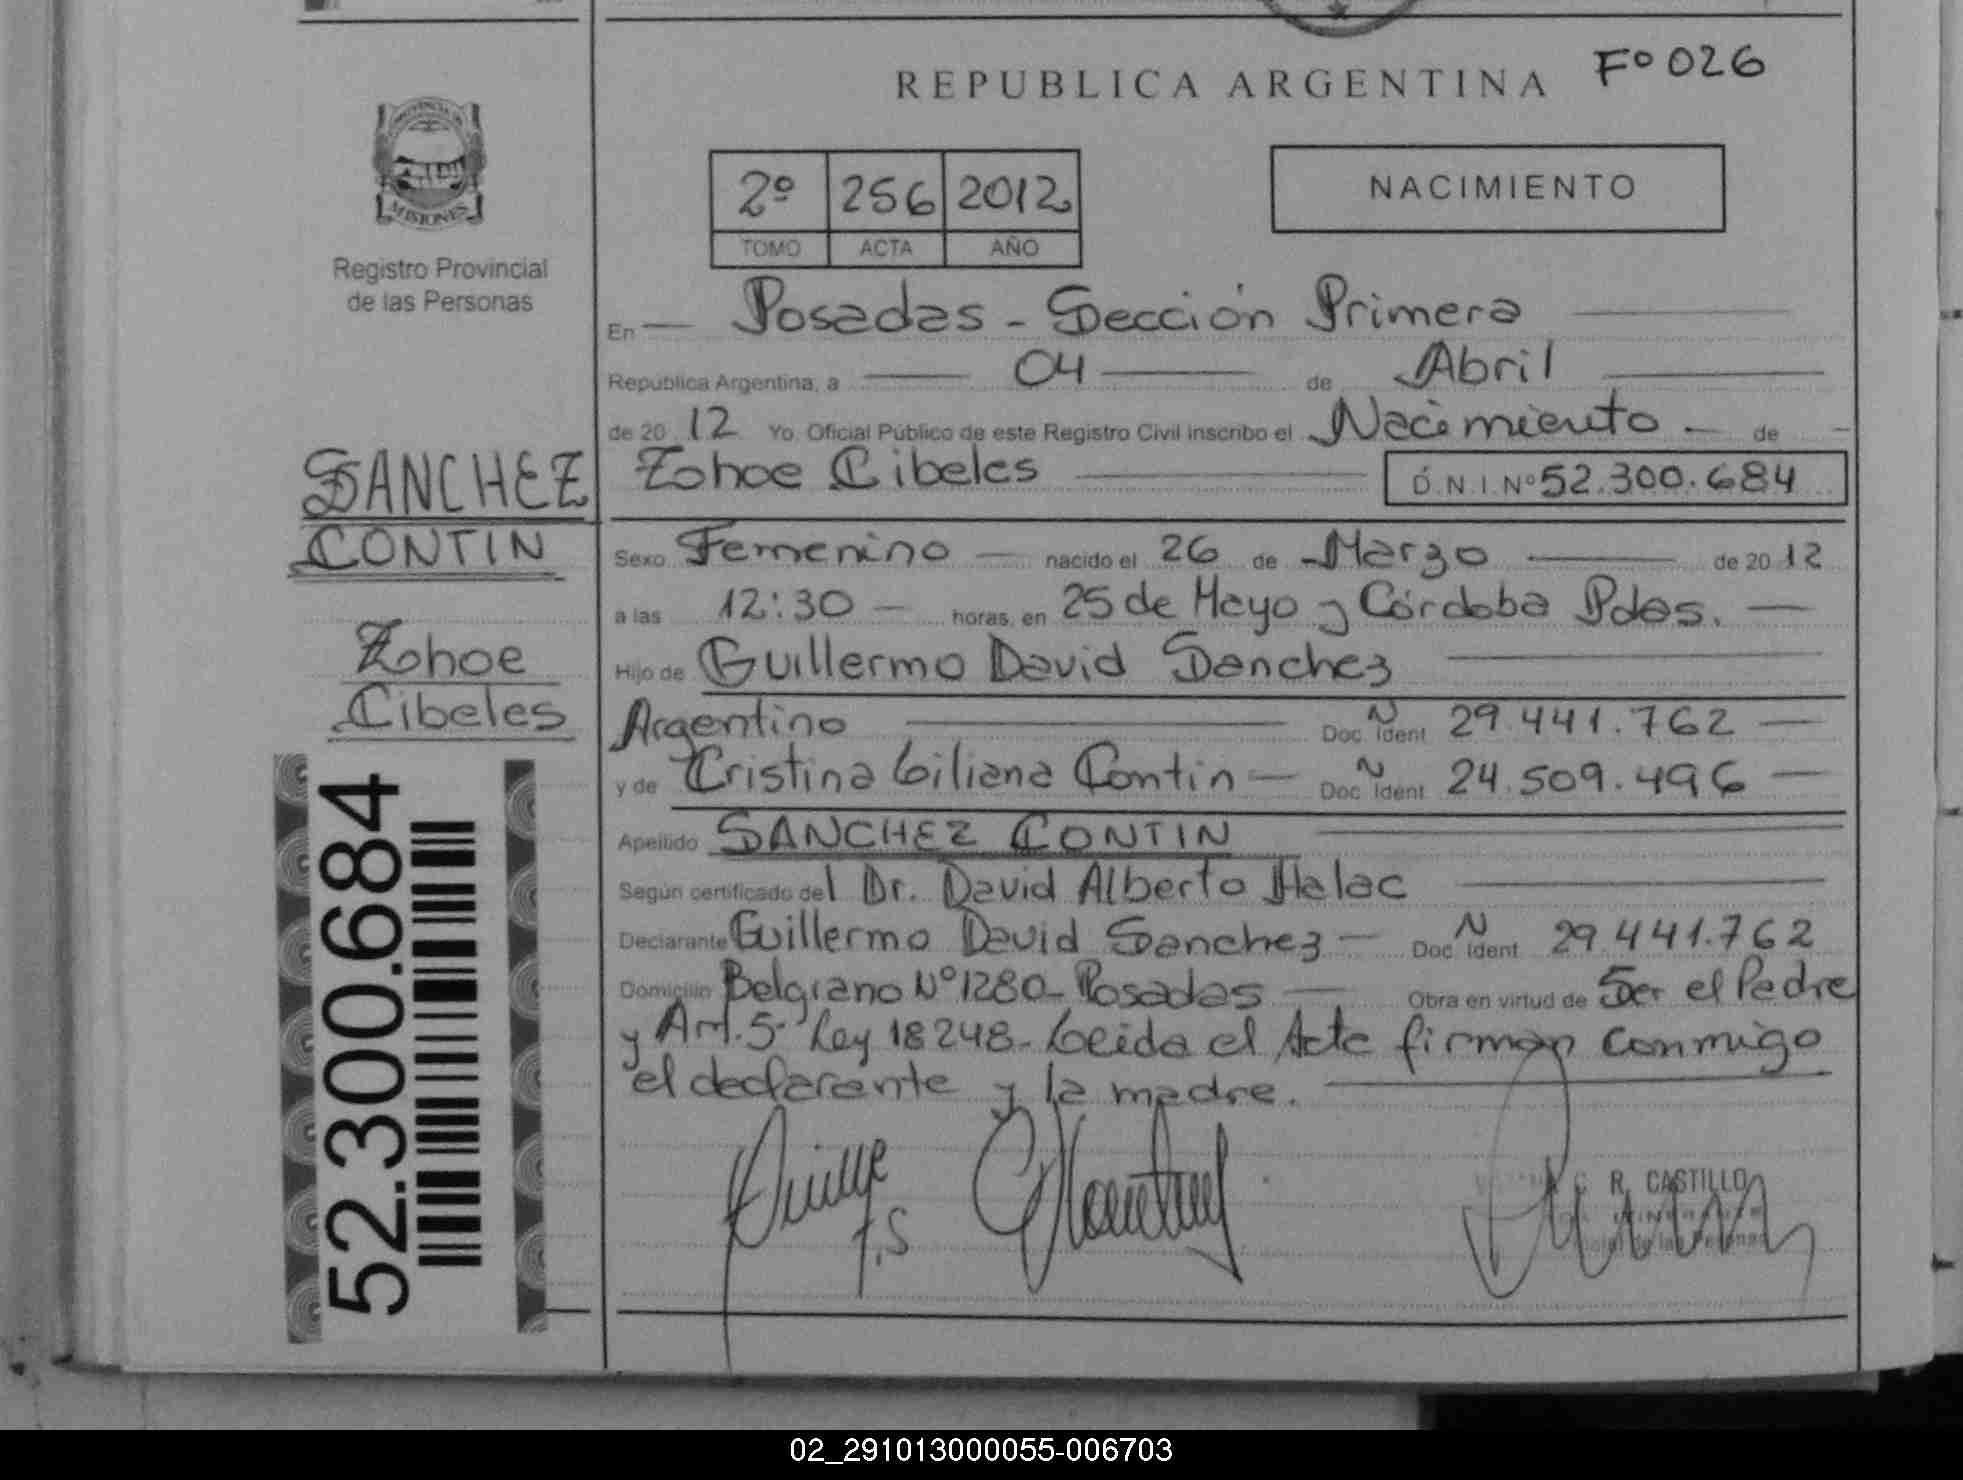 REPUBLICA ARGENTINA
Fº 026
MISIONES
Registro Provincial
de las Personas
2º 256 2012
TOMO ACTA AÑO
NACIMIENTO
En Posadas - Sección Primera
República Argentina, a 04 de Abril
de 20 12 Yo, Oficial Público de este Registro Civil inscribo el Nacimiento de
Zohoe Cibeles D.N.I.Nº 52.300.684
SANCHEZ
CONTIN
Zohoe
Cibeles
52.300.684
Sexo Femenino nacido el 26 de Marzo de 20 12
a las 12:30 horas, en 25 de Mayo y Córdoba Pdas.
Hijo de Guillermo David Sanchez
Argentino Doc. N Ident 29.441.762
y de Cristina Liliana Contin Doc. Ñ Ident 24.509.496
Apellido SANCHEZ CONTIN
Según certificado del Dr. David Alberto Halac
Declarante Guillermo David Sanchez Doc. N Ident 29.441.762
Domicilio Belgrano Nº 1280 - Posadas Obra en virtud de Ser el Padre
y Art. 5º Ley 18248 - Leida el Acta firman conmigo
el declarante y la madre.
R. CASTILLO
02_291013000055-006703